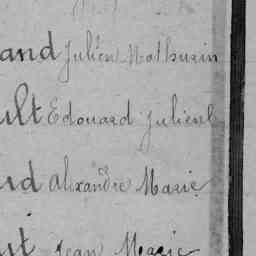 and Julien Mathurin
ult Edouard Julien
ud Alexandre Marie
ut Jean Marie